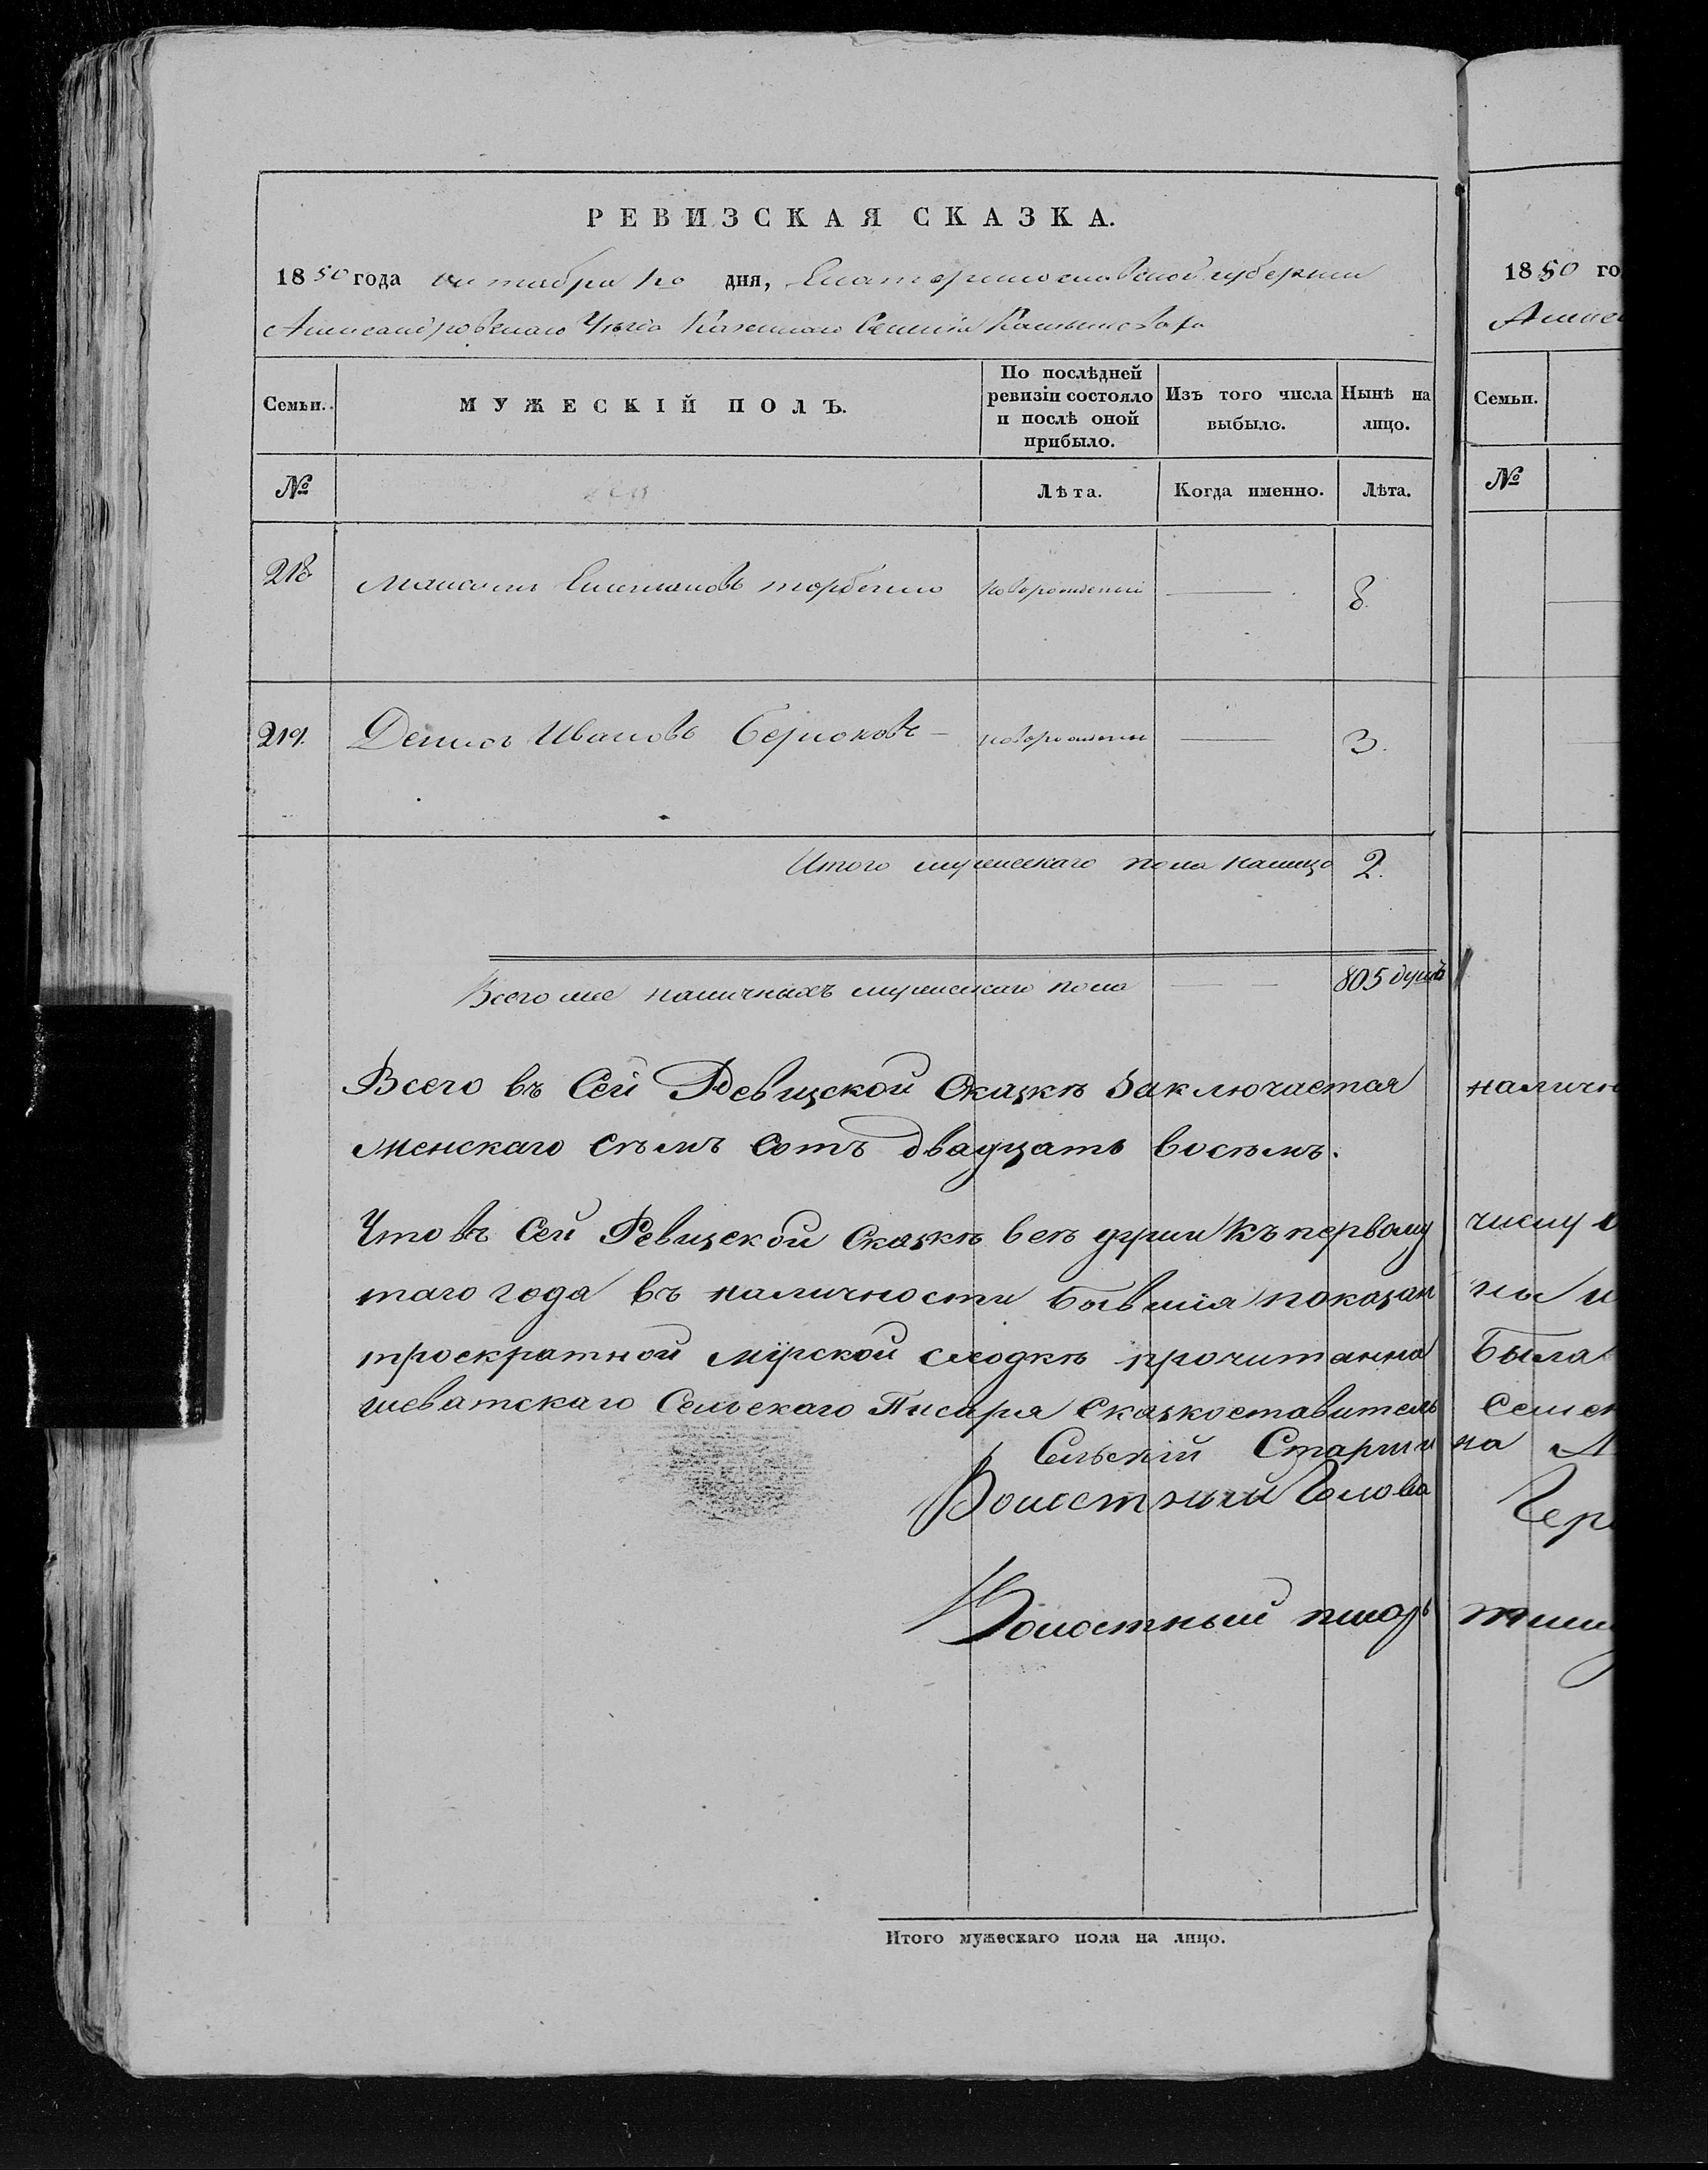 РЕВИЗСКАЯ СКАЗКА.
1850 года октября 1го дня, Екатеринославской губернии
Александровскаго Уезда Казеннаго Селенія
Семьи. МУЖЕСКІЙ ПОЛЪ. По послѣдней ревизіи состояло и послѣ оной прибыло. Изъ того числа выбыло. Нынѣ на лицо.
№ Лѣта. Когда именно. Лѣта.
218 Торбенко новорожденый — 8.
219. Денисъ Ивановъ Бериоковъ — новорожденый — 3.
Итого мужескаго пола налицо 2.
Всего же наличныхъ мужескаго пола — — 805 душъ
Всего въ Сей Ревизской Сказкѣ Заключается
женскаго сѣмъ Сотъ двадцать восѣмъ.
Что въ Сей Ревизской Сказкѣ всѣ души къ первому
таго года въ наличности бывшія показан
троекратной мірской сходкѣ прочитанна
шеватскаго Сельскаго Писаря Сказкоставитель
Сельскій Старшин
Волостный Голова
Волостный писарь
Итого мужескаго пола на лицо.
1850 го
Семьи.
№
наличн
числу
ны и
была
Семен
на А
Чер